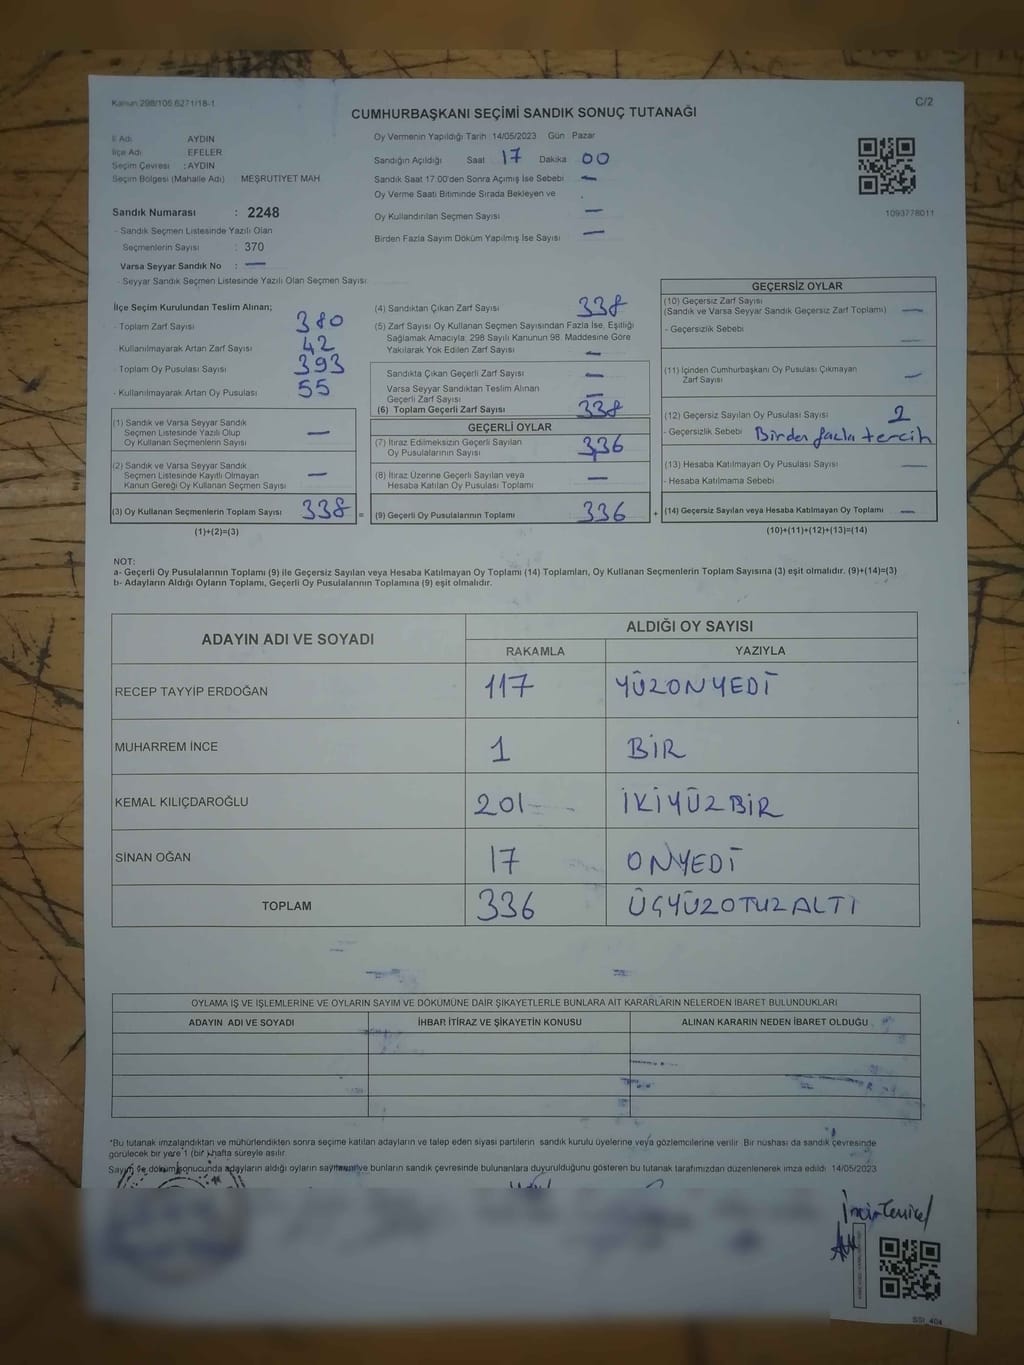 Kanun 298/106.6271/18-1
C/2
CUMHURBAŞKANI SEÇİMİ SANDIK SONUÇ TUTANAĞI
İl Adı : AYDIN
İlçe Adı : EFELER
Seçim Çevresi : AYDIN
Seçim Bölgesi (Mahalle Adı) : MEŞRUTİYET MAH
Sandık Numarası : 2248
- Sandık Seçmen Listesinde Yazılı Olan
Seçmenlerin Sayısı : 370
Varsa Seyyar Sandık No : —
- Seyyar Sandık Seçmen Listesinde Yazılı Olan Seçmen Sayısı
Oy Vermenin Yapıldığı Tarih : 14/05/2023 Gün : Pazar
Sandığın Açıldığı Saat 17 Dakika 00
Sandık Saat 17.00'den Sonra Açımış İse Sebebi —
Oy Verme Saati Bitiminde Sırada Bekleyen ve
Oy Kullandırılan Seçmen Sayısı —
Birden Fazla Sayım Döküm Yapılmış İse Sayısı —
1093778011
İlçe Seçim Kurulundan Teslim Alınan;
- Toplam Zarf Sayısı 380
- Kullanılmayarak Artan Zarf Sayısı 42
- Toplam Oy Pusulası Sayısı 393
- Kullanılmayarak Artan Oy Pusulası 55
(1) Sandık ve Varsa Seyyar Sandık
Seçmen Listesinde Yazılı Olup
Oy Kullanan Seçmenlerin Sayısı —
(2) Sandık ve Varsa Seyyar Sandık
Seçmen Listesinde Kayıtlı Olmayan
Kanun Gereği Oy Kullanan Seçmen Sayısı —
(3) Oy Kullanan Seçmenlerin Toplam Sayısı 338 =
(1)+(2)=(3)
(4) Sandıktan Çıkan Zarf Sayısı 338
(5) Zarf Sayısı Oy Kullanan Seçmen Sayısından Fazla İse, Eşitliği
Sağlamak Amacıyla; 298 Sayılı Kanunun 98. Maddesine Göre
Yakılarak Yok Edilen Zarf Sayısı —
Sandıkta Çıkan Geçerli Zarf Sayısı —
Varsa Seyyar Sandıktan Teslim Alınan
Geçerli Zarf Sayısı —
(6) Toplam Geçerli Zarf Sayısı 338
GEÇERLİ OYLAR
(7) İtiraz Edilmeksizin Geçerli Sayılan
Oy Pusulalarının Sayısı 336
(8) İtiraz Üzerine Geçerli Sayılan veya
Hesaba Katılan Oy Pusulası Toplamı —
(9) Geçerli Oy Pusulalarının Toplamı 336 +
GEÇERSİZ OYLAR
(10) Geçersiz Zarf Sayısı
(Sandık ve Varsa Seyyar Sandık Geçersiz Zarf Toplamı) —
- Geçersizlik Sebebi —
(11) İçinden Cumhurbaşkanı Oy Pusulası Çıkmayan
Zarf Sayısı —
(12) Geçersiz Sayılan Oy Pusulası Sayısı 2
- Geçersizlik Sebebi Birden fazla tercih
(13) Hesaba Katılmayan Oy Pusulası Sayısı —
- Hesaba Katılmama Sebebi
(14) Geçersiz Sayılan veya Hesaba Katılmayan Oy Toplamı —
(10)+(11)+(12)+(13)=(14)
NOT:
a- Geçerli Oy Pusulalarının Toplamı (9) ile Geçersiz Sayılan veya Hesaba Katılmayan Oy Toplamı (14) Toplamları, Oy Kullanan Seçmenlerin Toplam Sayısına (3) eşit olmalıdır. (9)+(14)=(3)
b- Adayların Aldığı Oyların Toplamı, Geçerli Oy Pusulalarının Toplamına (9) eşit olmalıdır.
ADAYIN ADI VE SOYADI
ALDIĞI OY SAYISI
RAKAMLA YAZIYLA
RECEP TAYYİP ERDOĞAN 117 YÜZONYEDİ
MUHARREM İNCE 1 BİR
KEMAL KILIÇDAROĞLU 201 İKİYÜZBİR
SİNAN OĞAN 17 ONYEDİ
TOPLAM 336 ÜÇYÜZOTUZALTI
OYLAMA İŞ VE İŞLEMLERİNE VE OYLARIN SAYIM VE DÖKÜMÜNE DAİR ŞİKAYETLERLE BUNLARA AİT KARARLARIN NELERDEN İBARET BULUNDUKLARI
ADAYIN ADI VE SOYADI İHBAR İTİRAZ VE ŞİKAYETİN KONUSU ALINAN KARARIN NEDEN İBARET OLDUĞU
*Bu tutanak imzalandıktan ve mühürlendikten sonra seçime katılan adayların ve talep eden siyasi partilerin sandık kurulu üyelerine veya gözlemcilerine verilir. Bir nüshası da sandık çevresinde
görülecek bir yere 1 (bir) hafta süreyle asılır.
Sayım ve döküm sonucunda adayların aldığı oyların sayıları ve bunların sandık çevresinde bulunanlara duyurulduğunu gösteren bu tutanak tarafımızdan düzenlenerek imza edildi. 14/05/2023
SSI_404